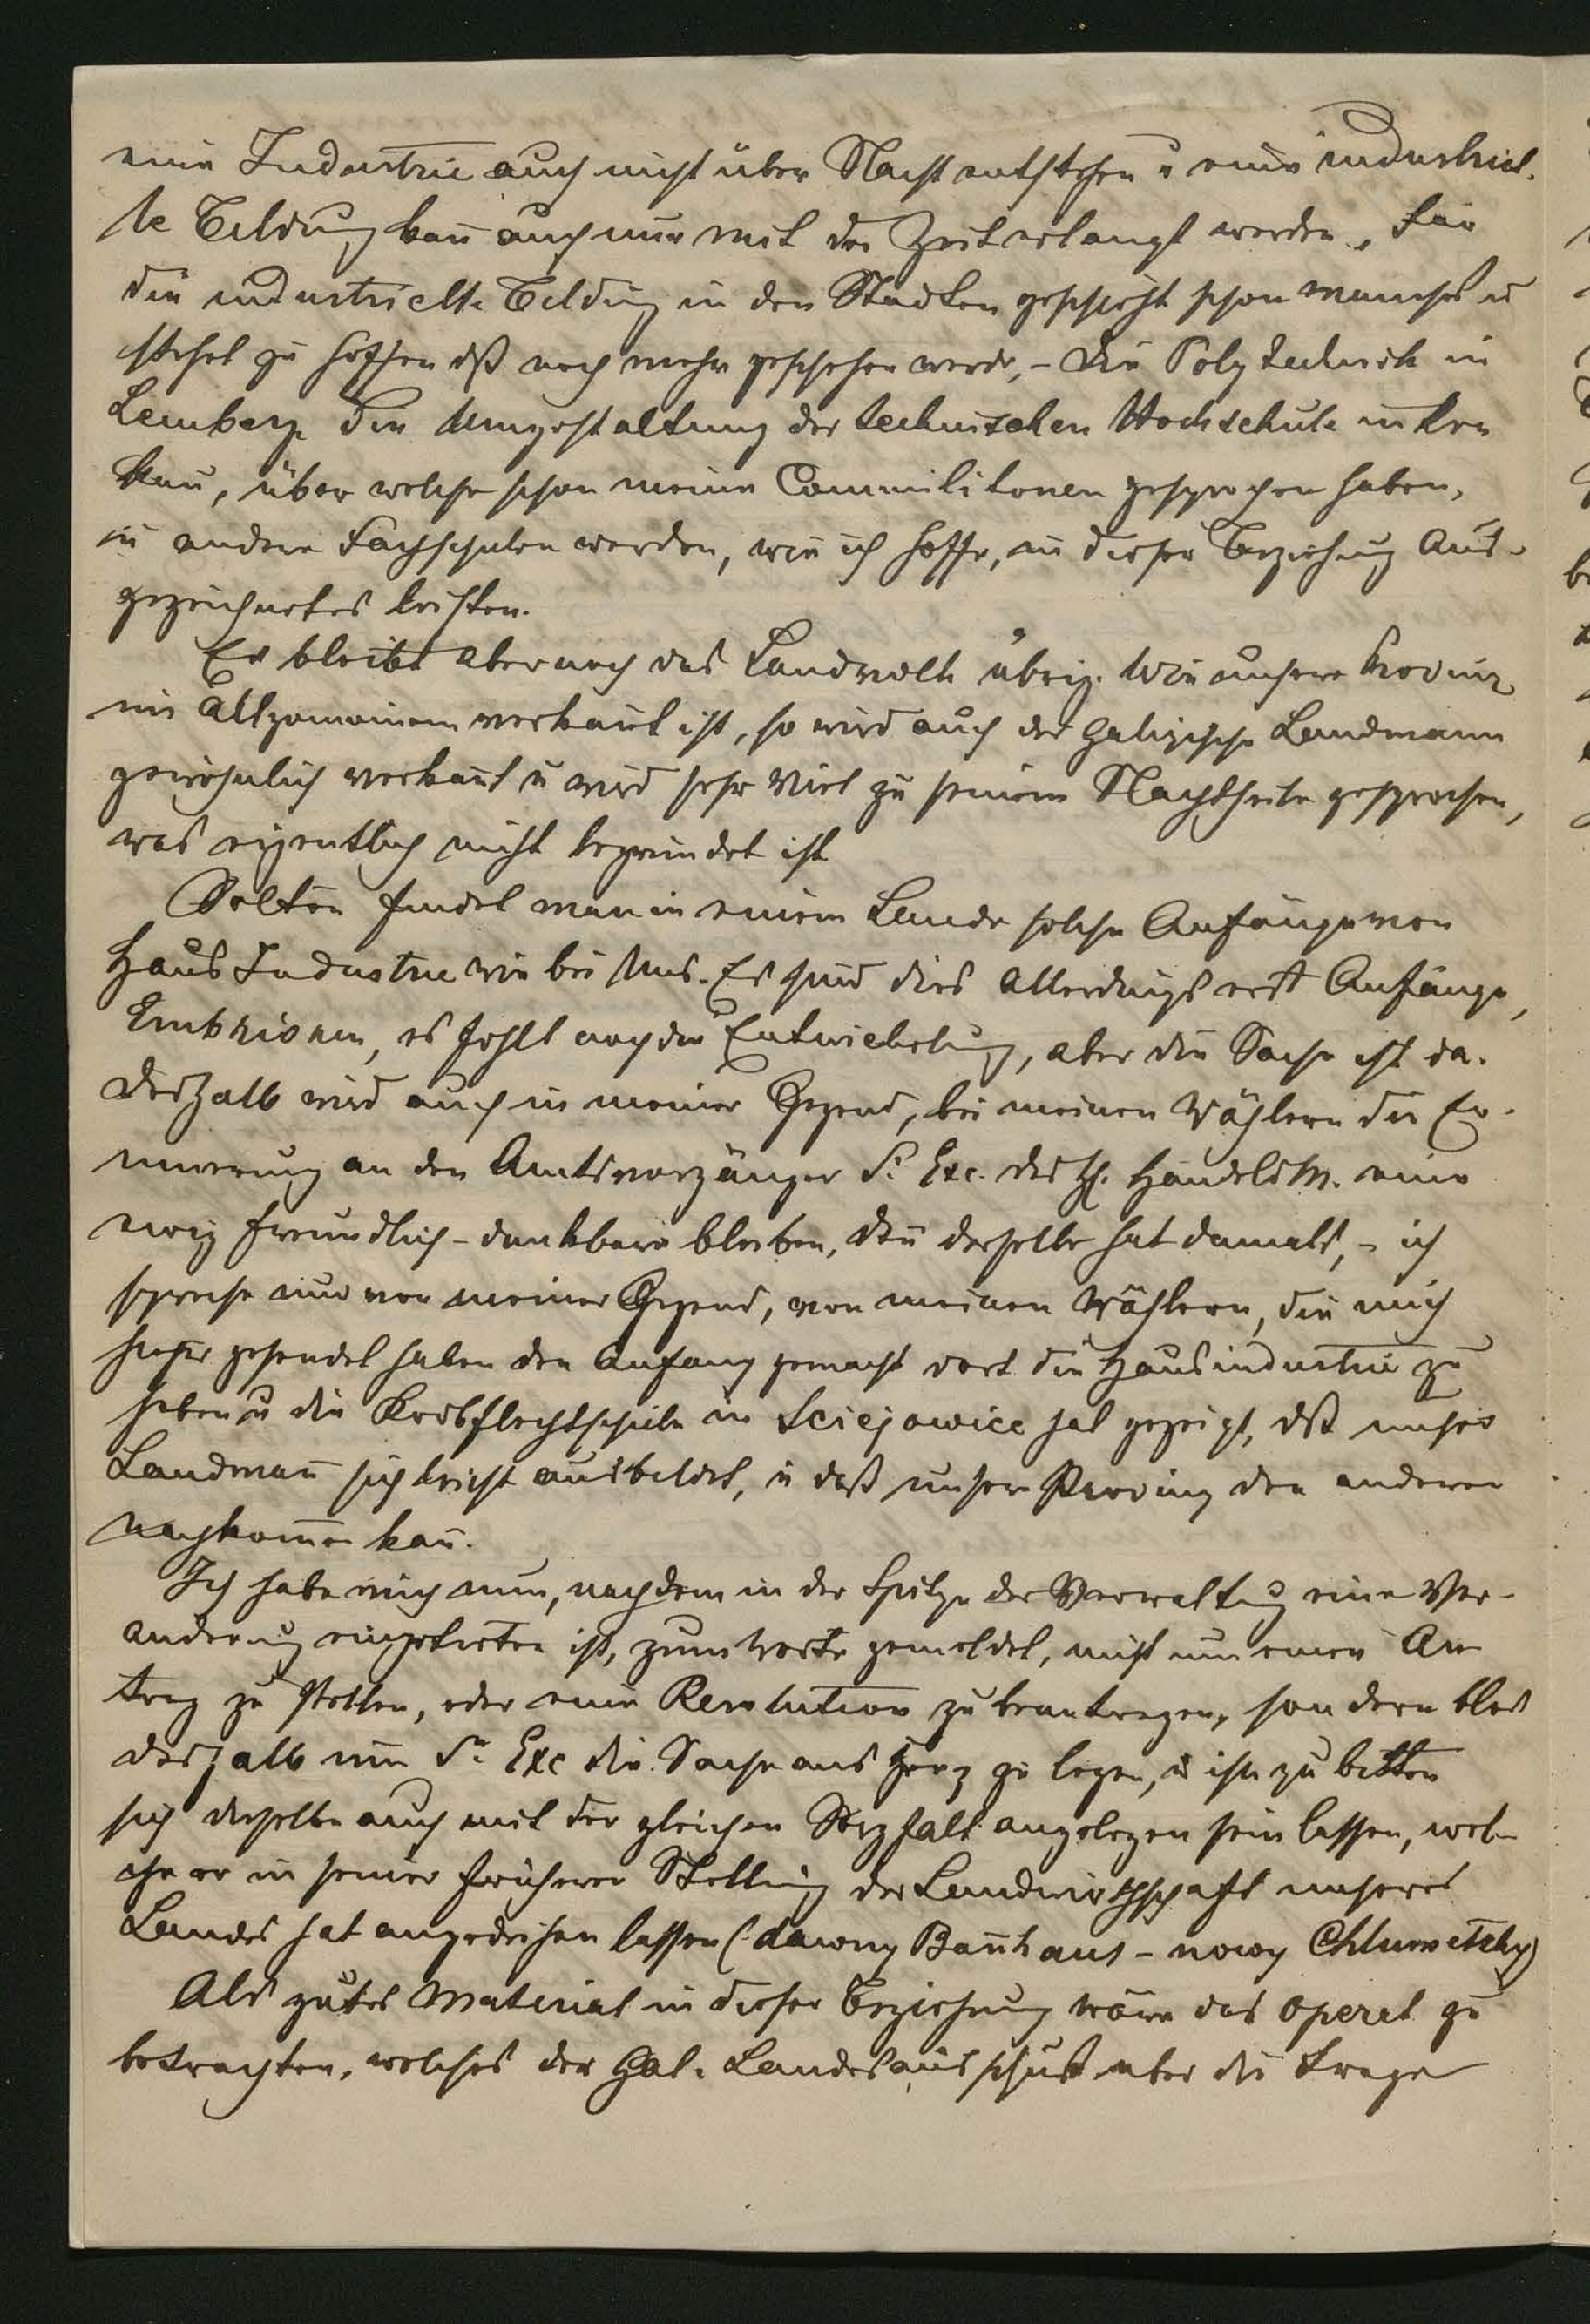 eine Industrie auch nicht über Nacht entstehen u eine industriel-
le Bildung kan̄ auch nur mit der Zeit erlangt werden. Für
die industrielle Bildung in den Städten geschieht schon manches u
steht zu hoffen dß noch mehr geschehen werde, – die Polytechnik in
Lemberg die Umgestaltung der technischen Hochschule in Kra
kau, über welche schon meine Commilitonen gesprochen haben,
u andere Fachschulen werden, wie ich hoffe, in dieser Beziehung Aus-
gezeichnetes leisten.
Es bleibt aber noch das Landvolk übrig. Wie unsere Provinz
im Allgemeinen verkan̄t ist, so wird auch der galizische Landmann
gewöhnlich verkan̄t u wird sehr viel zu seinem Nachtheile gesprochen,
was eigentlich nicht begründet ist
Selten findet man in einem Lande solche Anfänge von
Haus Industrie wie bei Uns. Es sind dies allerdings erst Anfänge,
Embrionen, es fehlt noch die Entwickelung, aber die Sache ist da.
Deshalb wird auch in meiner Gegend, bei meinen Wählern die Er-
innerung an den Amtsvorgänger Sr Exc. des H. Handelsm. eine
ewig freundlich-dankbare bleiben, den̄ derselbe hat damals, – ich
spreche nur von meiner Gegend, von meinen Wählern, die mich
hieher gesendet haben den Anfang gemacht dort die Hausindustrie zu
heben u die Korbflechtschule in Sciejowice hat gezeigt, dß unser
Landman̄ sich leicht ausbildet, u daß unsere Provinz den anderen
nachkom̄en kan̄.
Ich habe mich nun, nachdem in der Spitze der Verwaltung eine Ver-
anderung eingetreten ist, zum Worte gemeldet, nicht um einen An
trag zu stellen, oder eine Resolution zu beantragen, sondern blos
deshalb um Sr Exc die Sache ans Herz zu legen, u ihn zu bitten
sich dieselbe auch mit der gleichen Sorgfalt angelegen sein lassen, wel-
che er in seiner früheren Stellung der Landwirthschaft unseres
Landes hat angedeihen lassen (dawny Ban̄hans – nowy Chlumetzky)
Als gutes Material in dieser Beziehung wäre das Operat zu
betrachten, welches der Gal. Landesausschuß uber die Frage